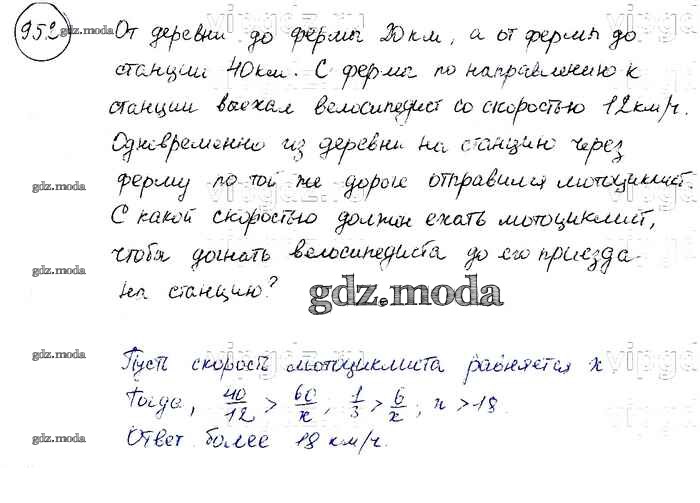 952
От деревни до фермы 20 км, а от фермы до
станции 40 км. С фермы по направлению к
станции выехал велосипедист со скоростью 12 км/ч.
Одновременно из деревни на станцию через
ферму по той же дороге отправился мотоциклист.
С какой скоростью должен ехать мотоциклист,
чтобы догнать велосипедиста до его приезда
на станцию?
Пусть скорость мотоциклиста равняется x
Тогда, 40/12 > 60/x, 1/3 > 6/x; x > 18.
Ответ более 18 км/ч.
gdz.moda
gdz.moda
gdz.moda
gdz.moda
gdz.moda
gdz.moda
gdz.moda